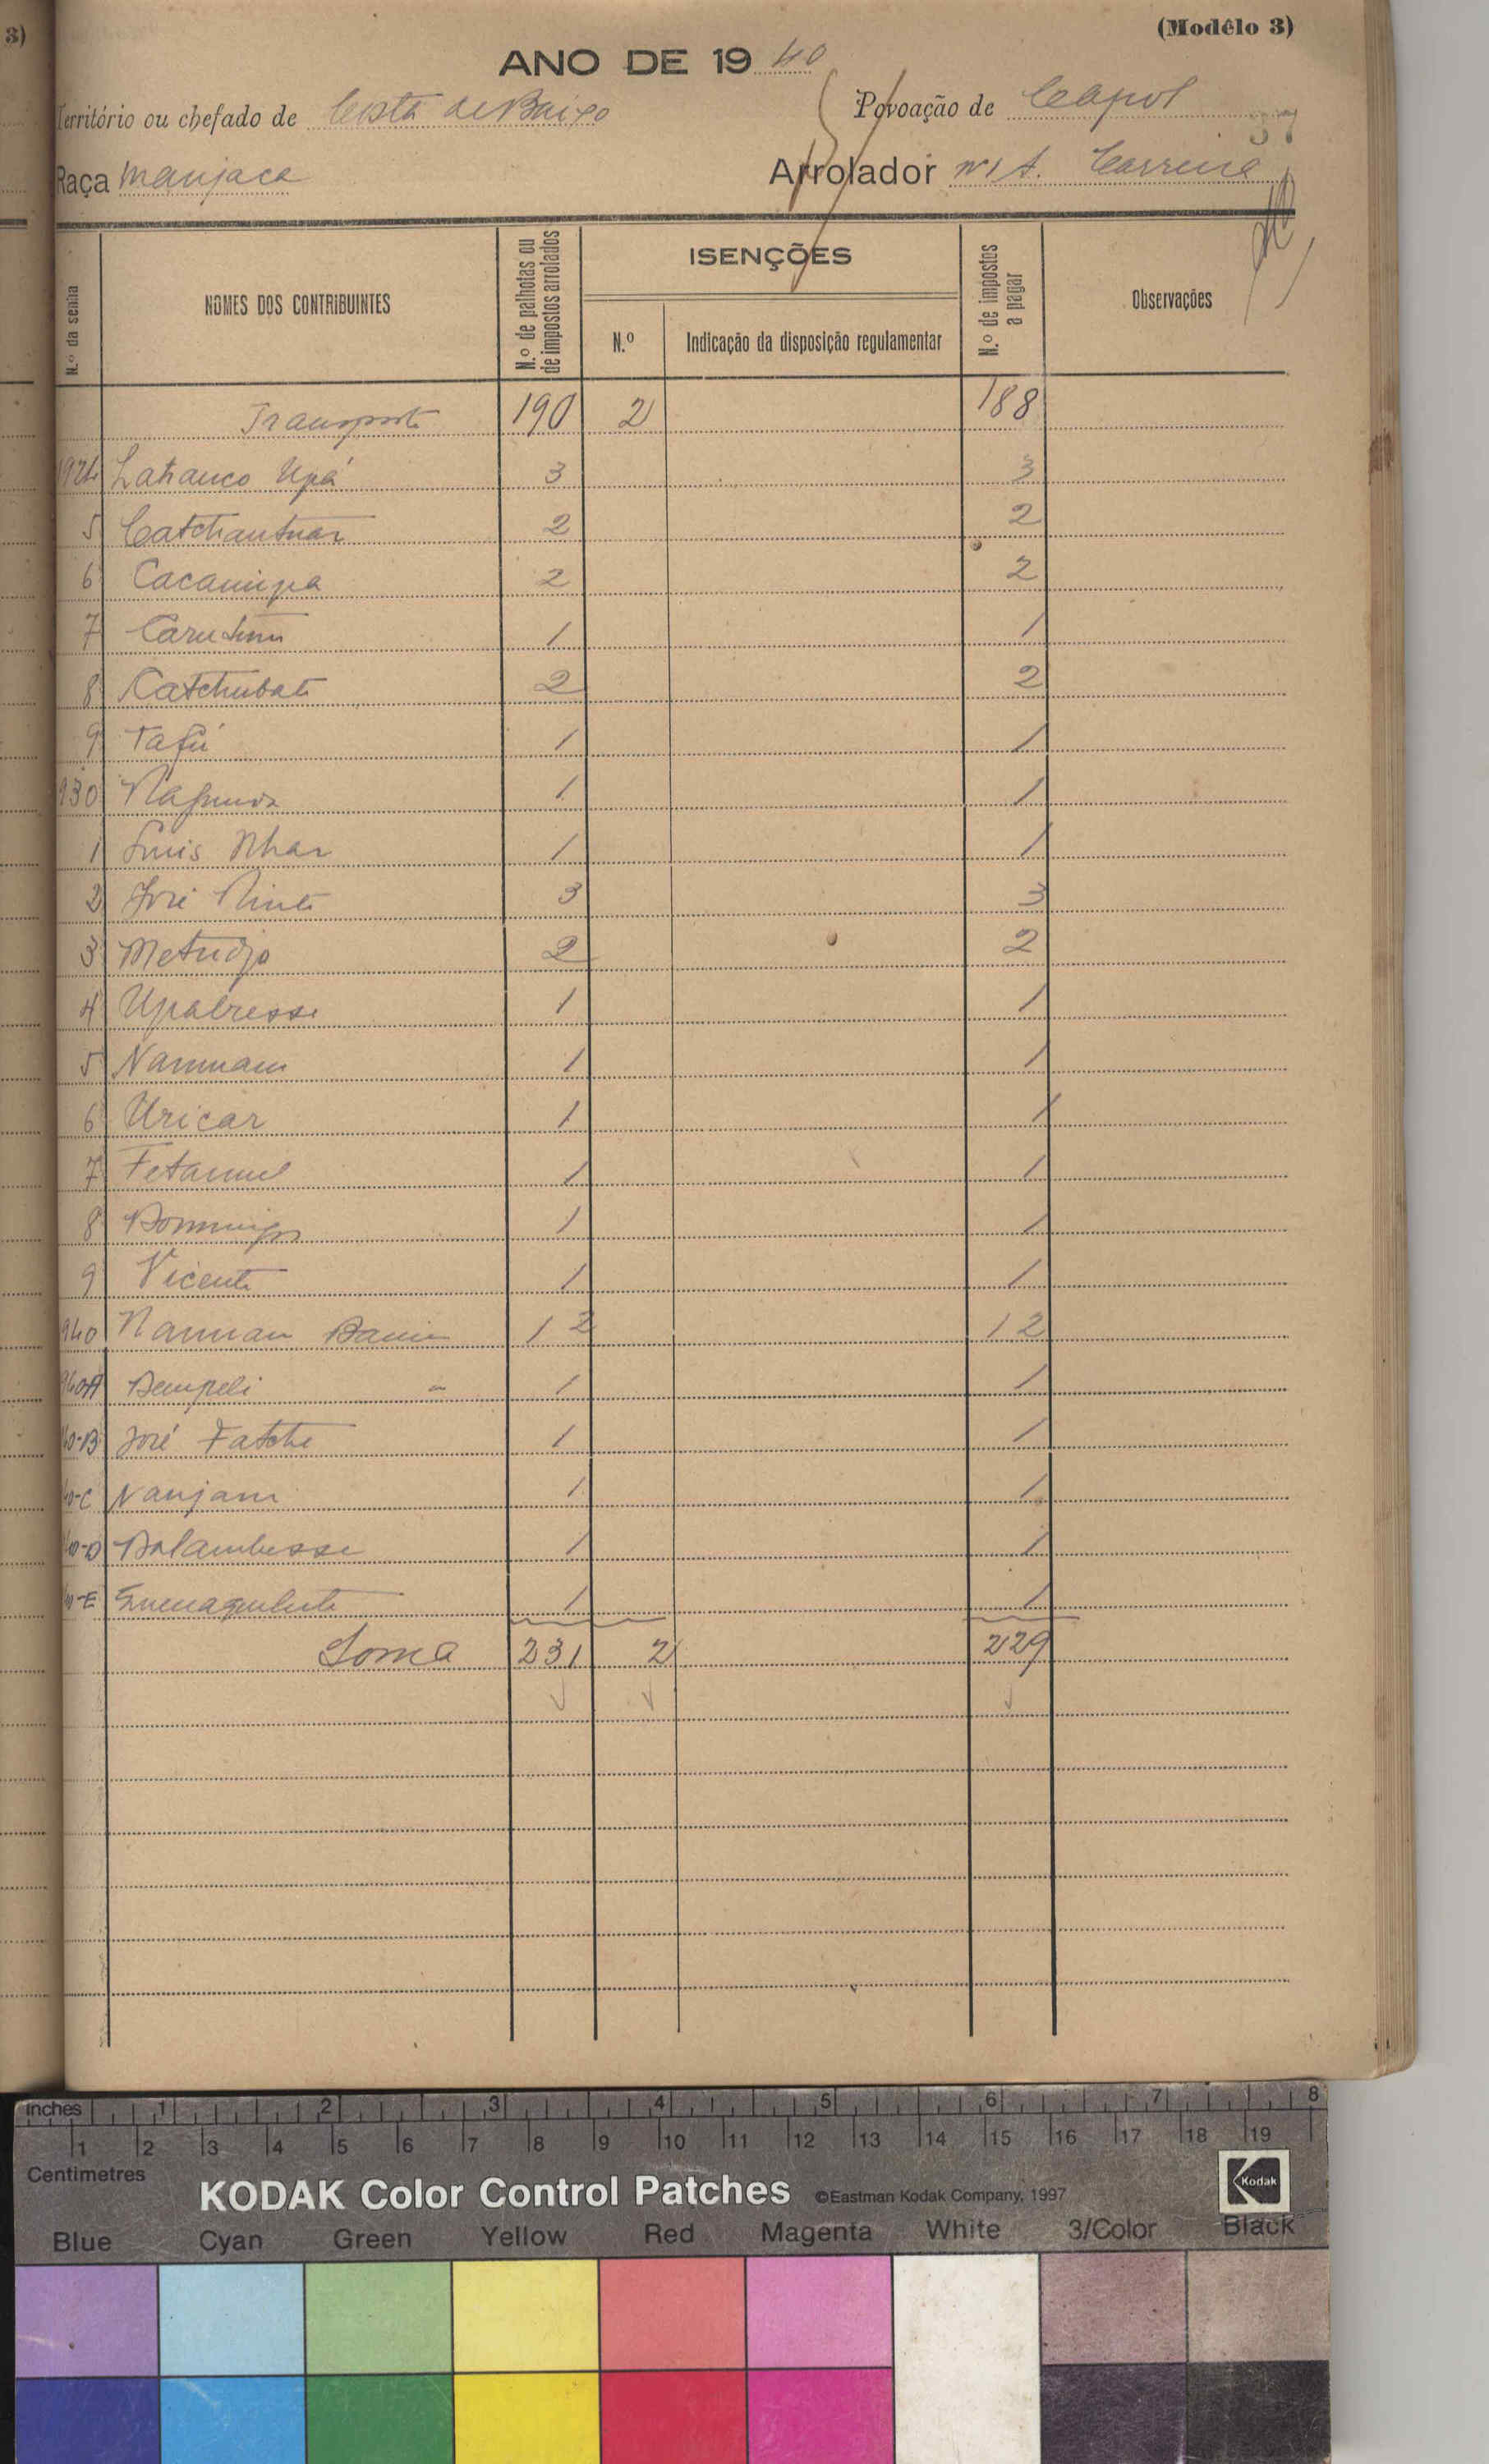 3)
(Modêlo 3)
ANO DE 19 40
Território ou chefado de Costa de Baixo
Povoação de Capol
37
Raça Manjaca
Arrolador
N.º da senha
NOMES DOS CONTRIBUINTES
N.º de palhotas ou de impostos arrolados
ISENÇÕES
N.º
Indicação da disposição regulamentar
N.º de impostos a pagar
Observações
Transporte 190 2 188
1924 Upá 3 3
5 2 2
6 2 2
7 1 1
8 Catchubate 2 2
9 Tafú 1 1
930 1 1
1 Luis Nhar 1 1
2 José 3 3
3 Metudjo 2 2
4 Upabresse 1 1
5 1 1
6 Uricar 1 1
7 1 1
8 Domingos 1 1
9 Vicente 1 1
940 12 12
940A Dempeli 1 1
40-B José Fatche 1 1
40-C Nanjam 1 1
40-D 1 1
40-E 1 1
Soma 231 2 229
inches 1 2 3 4 5 6 7 8
1 2 3 4 5 6 7 8 9 10 11 12 13 14 15 16 17 18 19
Centimetres
KODAK Color Control Patches ©Eastman Kodak Company, 1997 Kodak
Blue Cyan Green Yellow Red Magenta White 3/Color Black